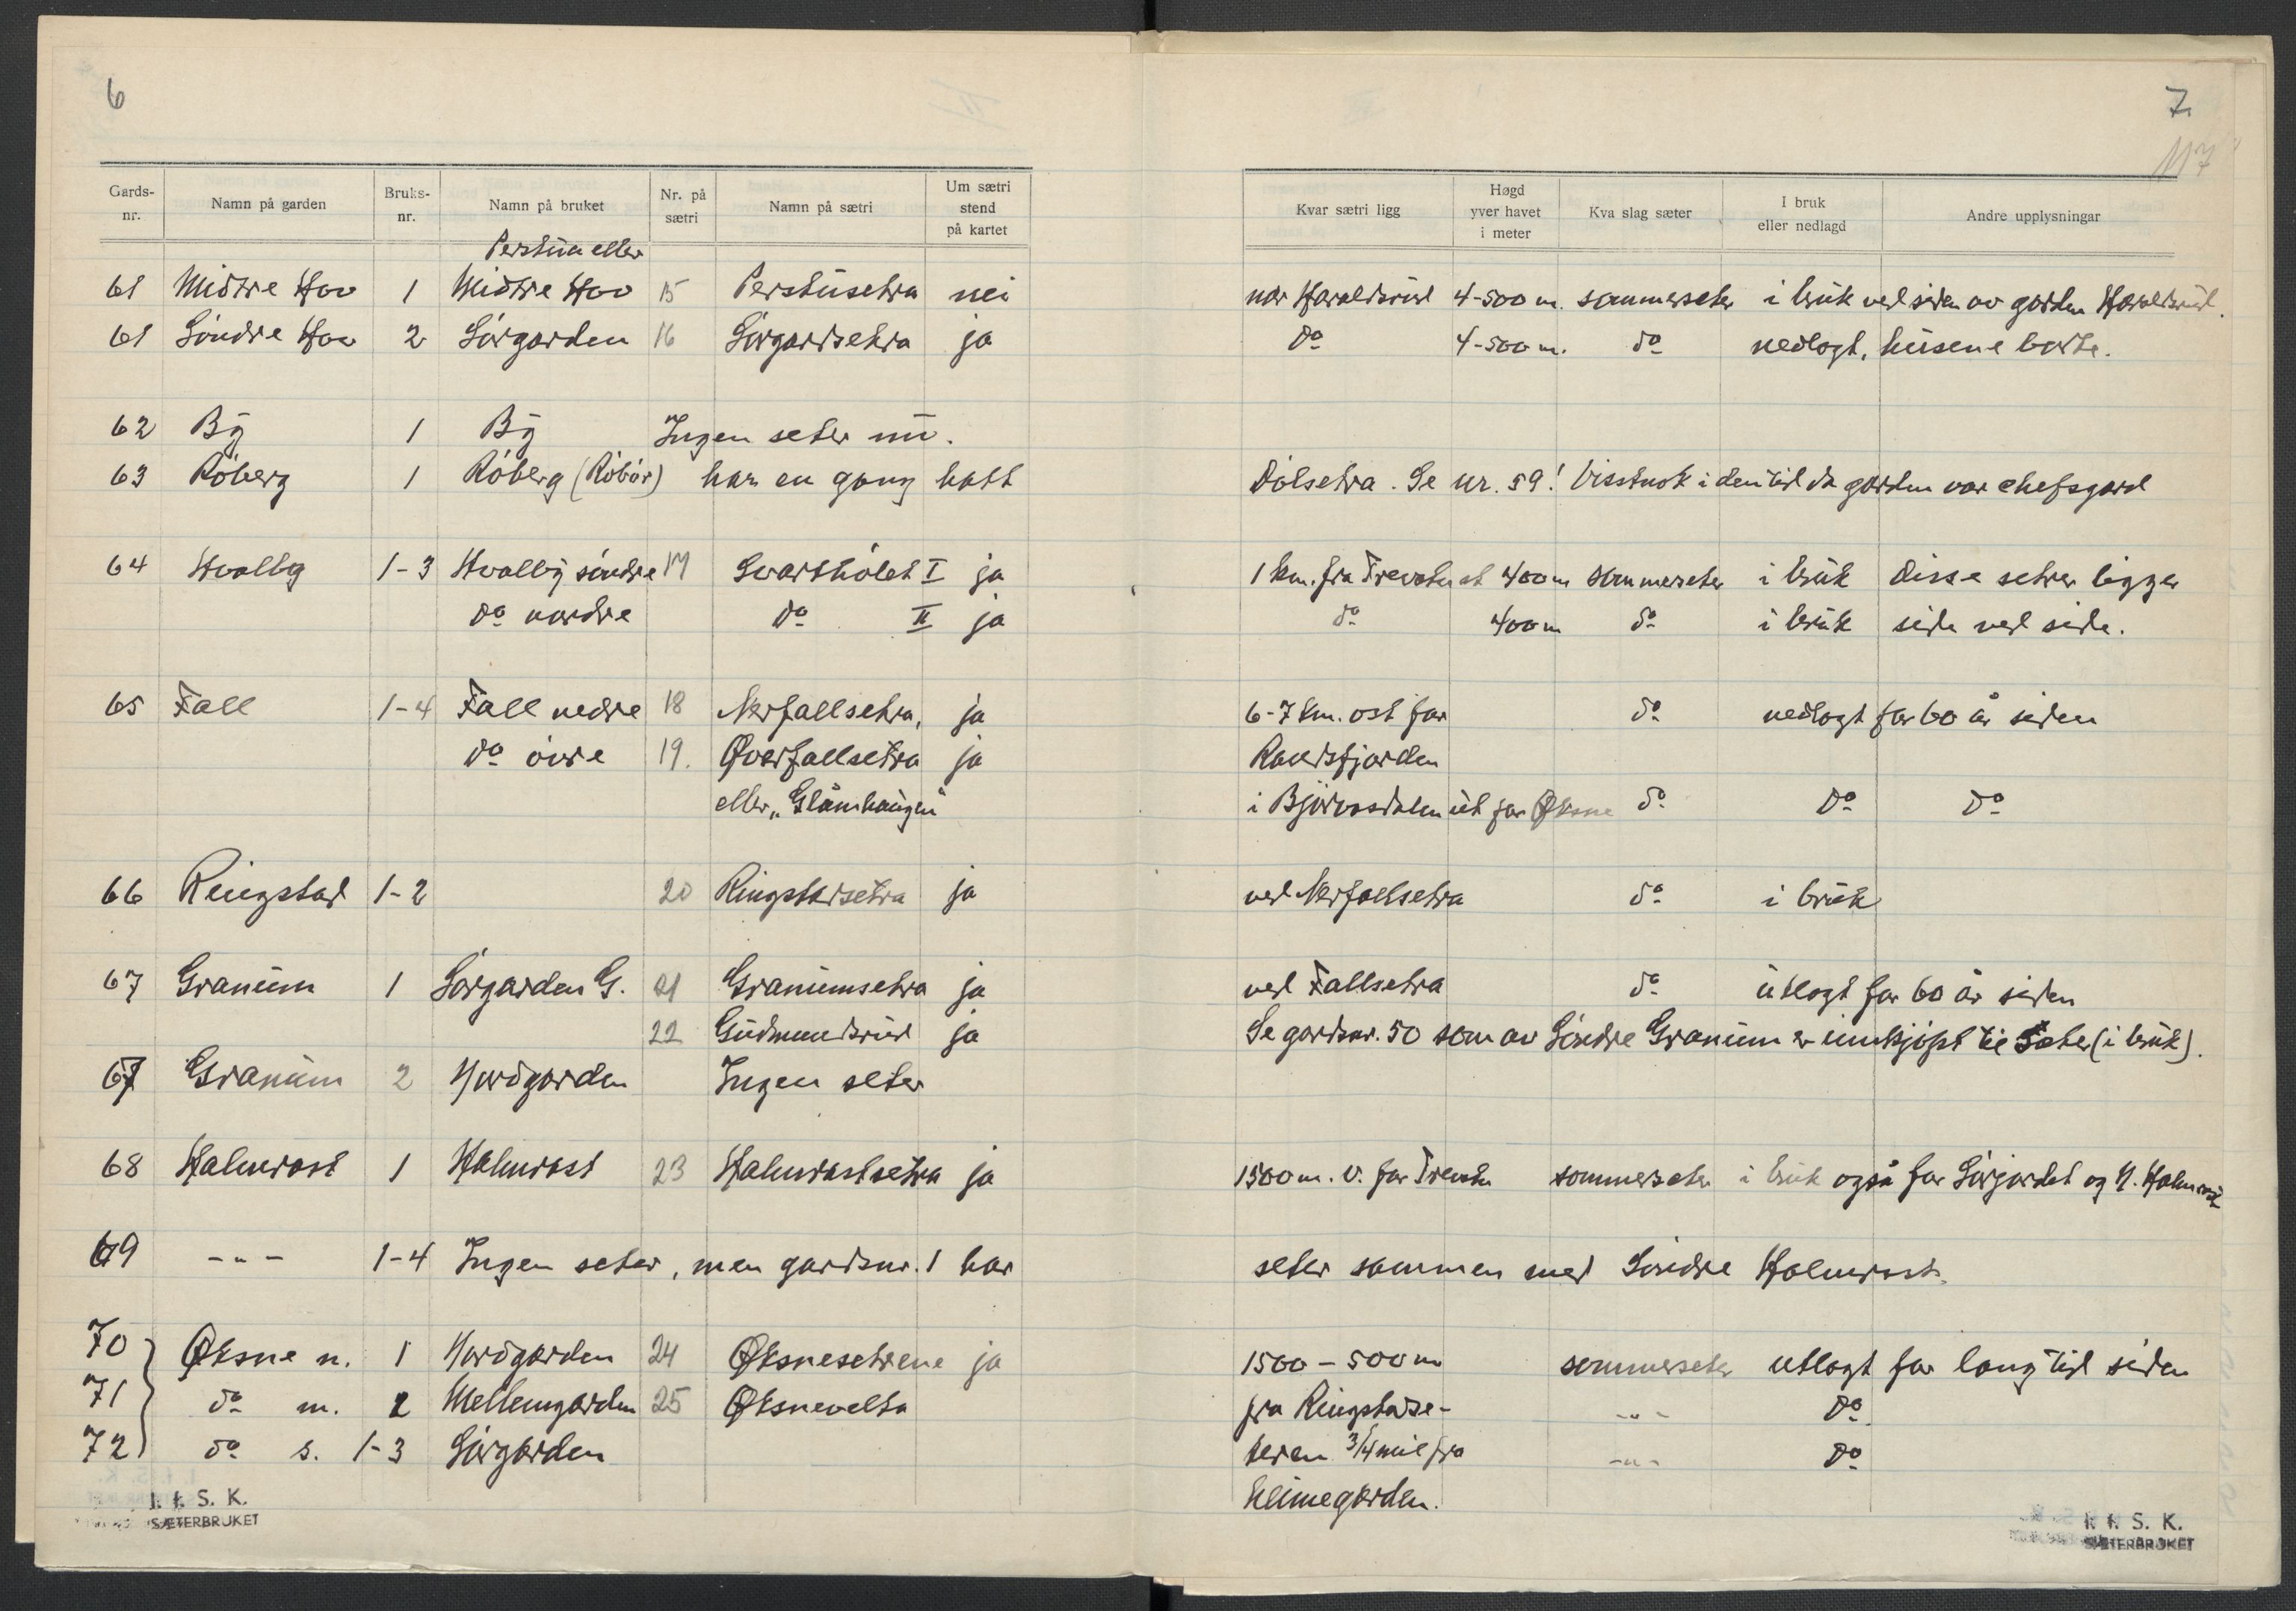 6
Gards-nr. Namn på garden Bruks-nr. Namn på bruket Nr. på sætri Namn på sætri Um sætri stend på kartet
Perstua eller
61 Midtre Hov 1 Midtre Hov 15 Perstusetra nei
61 Söndre Hov 2 Sörgarden 16 Sörgardsetra ja
62 By 1 By Ingen seter nu.
63 Röberg 1 Röberg (Röbör) har en gang hatt
64 Hvalby 1-3 Hvalby söndre 17 Svarthölet I ja
do nordre do II ja
65 Fall 1-4 Fall nedre 18 Nerfallsetra, ja
do övre 19. Øverfallsetra ja
eller „Glåmhaugen"
66 Ringstad 1-2 20 Ringstadsetra ja
67 Granum 1 Sörgarden G. 21 Granumsetra ja
22 Gudmundsrud ja
67 Granum 2 Nordgarden Ingen seter
68 Halmrast 1 Halmrast 23 Halmrastsetra ja
69 -"- 1-4 Ingen seter, men gardsnr. 1 har
70 Øksne n. 1 Nordgarden 24 Øksnesetrene ja
71 do m. 2 Mellemgarden 25 Øksnevelta
72 do s. 1-3 Sörgarden
I. f. S. K.
SÆTERBRUKET
7.
117
Kvar sætri ligg Høgd yver havet i meter Kva slag sæter I bruk eller nedlagd Andre upplysningar
nær Haraldsrud 4-500 m. sommerseter i bruk ved siden av garden Haraldsrud.
do 4-500 m. do nedlagt, husene borte.
Dölsetra. Se nr. 59! Visstnok i den tid da garden var chefsgard
1 km. fra Trevatn st 400 m sommerseter i bruk disse setrer ligger
do 400 m do i bruk side ved side.
6-7 km. ost for do nedlagt for 60 år siden
Randsfjorden
i Björvasdalen ut for Øksne do do do
ved Nerfallsetra do i bruk
ved Fallsetra do utlagt for 60 år siden
Se gardsnr. 50 som av Söndre Granum er innkjöpt til Seter (i bruk).
1500 m. v. for Trevatn sommerseter i bruk også for Sörjordet og N. Halmrast
seter sammen med Söndre Halmrast.
1500 - 500 m sommerseter utlagt for lang tid siden
fra Ringstadse- -"- do
teren 3/4 mil fra -"- do
heimegarden.
I. f. S. K.
SÆTERBRUKET